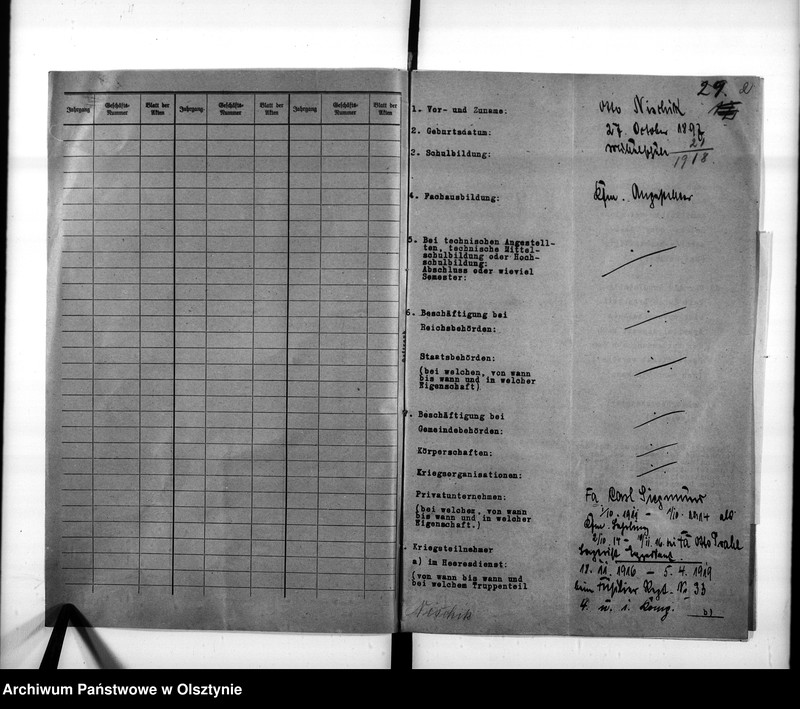 Jahrgang
Geschäfts-
Nummer
Blatt der
Akten
Jahrgang
Geschäfts-
Nummer
Blatt der
Akten
Jahrgang
Geschäfts-
Nummer
Blatt der
Akten
29.
1. Vor- und Zuname:
Otto Nischik
2. Geburtsdatum:
27. October 1897
21
1918.
2. Schulbildung:
4. Fachausbildung:
Kfm.
5. Bei technischen Angestell-
ten, technische Mittel-
schulbildung oder Hoch-
schulbildung:
Abschluss oder wieviel
Semester:
6. Beschäftigung bei
Reichsbehörden:
Staatsbehörden:
(bei welchen, von wann
bis wann und in welcher
Eigenschaft)
7. Beschäftigung bei
Gemeindebehörden:
Körperschaften:
Kriegsorganisationen:
Privatunternehmen:
(bei welchen, von wann
bis wann und in welcher
Eigenschaft.)
Fa Carl Siegmund
1/10. 1911 - 1/10. 1914 als
Kfm. Lehrling
. Kriegsteilnehmer
a) im Heeresdienst:
(von wann bis wann und
bei welchem Truppenteil
18. 11. 1916 - 5. 4. 1919
beim Füsilier Regt. No 33
4. u. 1. Komp.
b)
Nischik
Archiwum Państwowe w Olsztynie